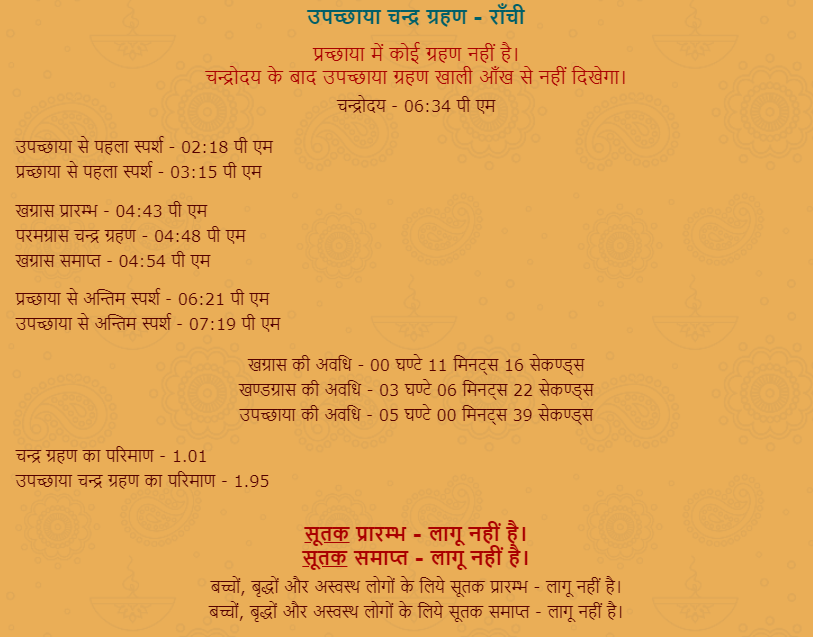 उपच्छाया चन्द्र ग्रहण - राँची
प्रच्छाया में कोई ग्रहण नहीं है।
चन्द्रोदय के बाद उपच्छाया ग्रहण खाली आँख से नहीं दिखेगा।
चन्द्रोदय - 06:34 पी एम
उपच्छाया से पहला स्पर्श - 02:18 पी एम
प्रच्छाया से पहला स्पर्श - 03:15 पी एम
खग्रास प्रारम्भ - 04:43 पी एम
परमग्रास चन्द्र ग्रहण - 04:48 पी एम
खग्रास समाप्त - 04:54 पी एम
प्रच्छाया से अन्तिम स्पर्श - 06:21 पी एम
उपच्छाया से अन्तिम स्पर्श - 07:19 पी एम
खग्रास की अवधि - 00 घण्टे 11 मिनट्स 16 सेकण्ड्स
खण्डग्रास की अवधि - 03 घण्टे 06 मिनट्स 22 सेकण्ड्स
उपच्छाया की अवधि - 05 घण्टे 00 मिनट्स 39 सेकण्ड्स
चन्द्र ग्रहण का परिमाण - 1.01
उपच्छाया चन्द्र ग्रहण का परिमाण - 1.95
सूतक प्रारम्भ - लागू नहीं है।
सूतक समाप्त - लागू नहीं है।
बच्चों, बृद्धों और अस्वस्थ लोगों के लिये सूतक प्रारम्भ - लागू नहीं है।
बच्चों, बृद्धों और अस्वस्थ लोगों के लिये सूतक समाप्त - लागू नहीं है।